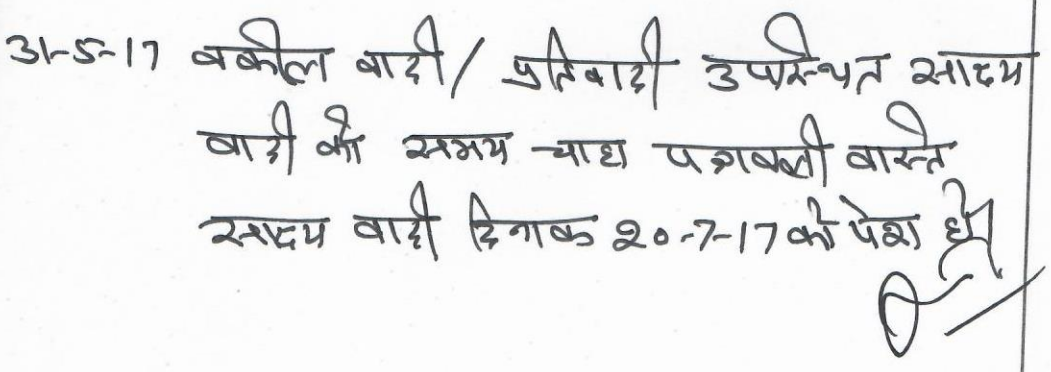 31-5-17 वकील वादी / प्रतिवादी उपस्थित साक्ष्य
वादी को समय चाहा पत्रावली वास्ते
साक्ष्य वादी दिनांक 20-7-17 को पेश हो।